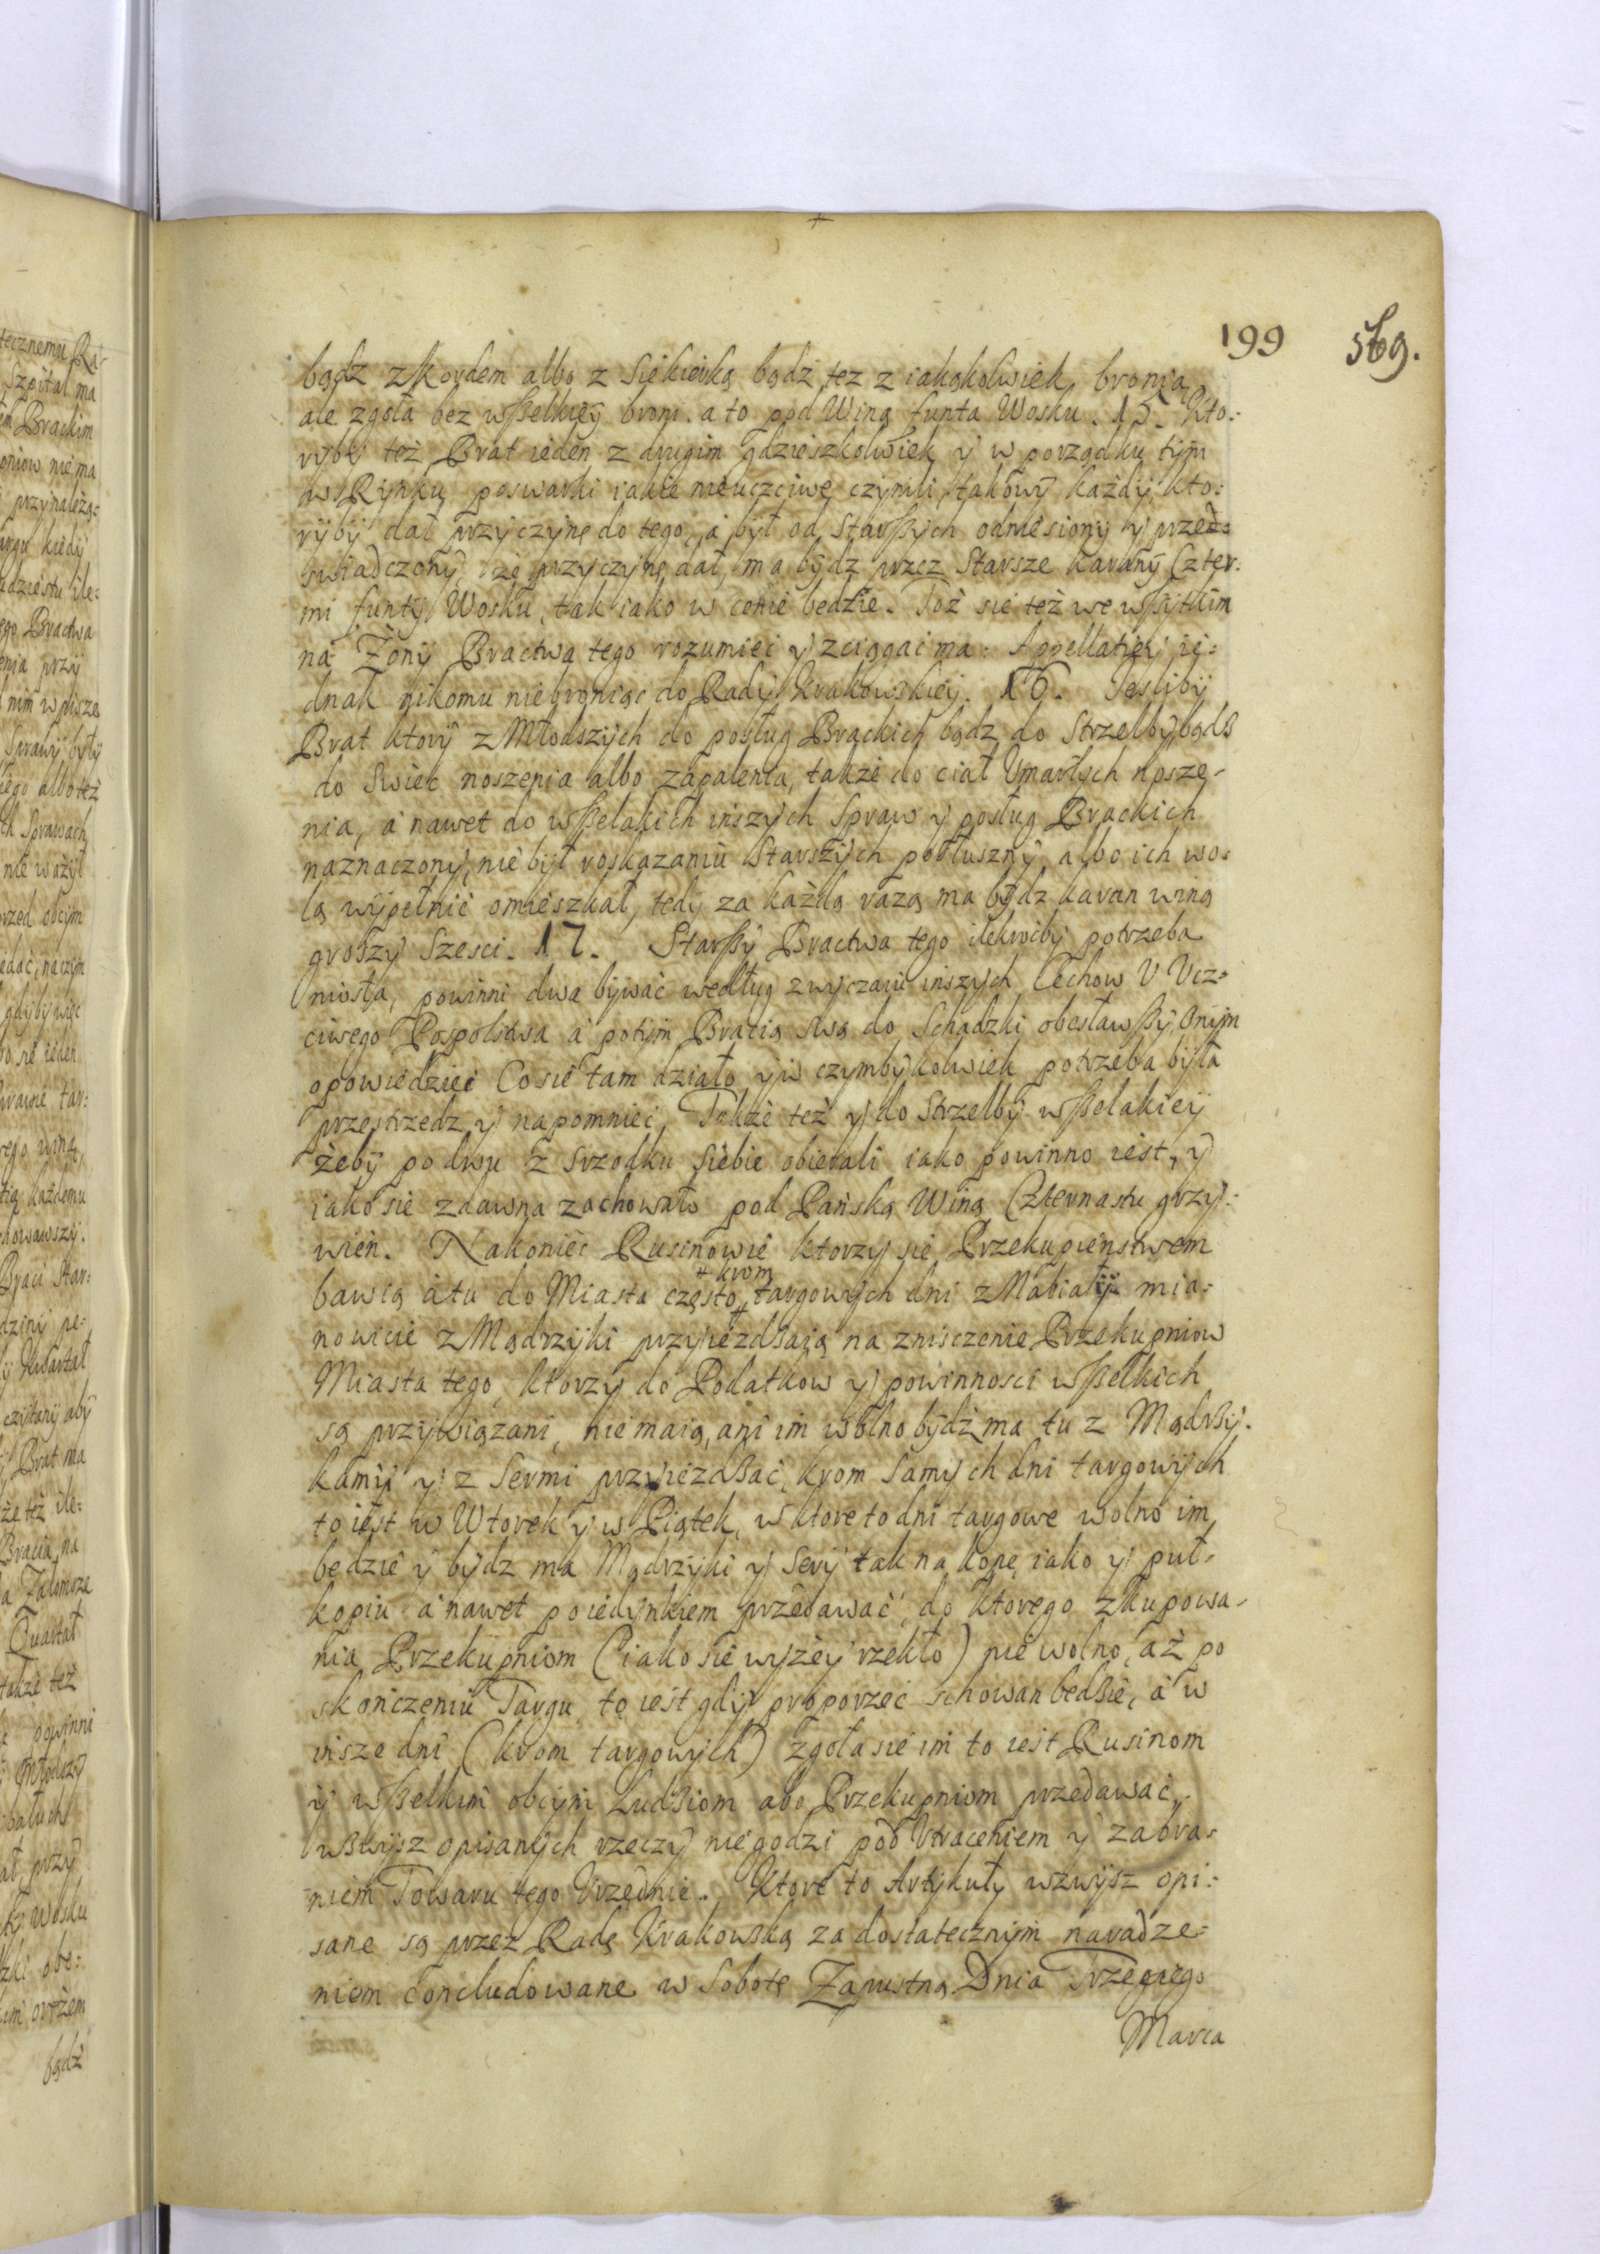 199 569.
bądz z kordem albo z Siekierką bądz tez z iakąkolwiek bronią
ale zgoła bez wßelkieÿ broni. a to pod Winą funta Wosku. 15. Kto:
rÿbÿ też Brat ieden z drugim gdzieszkolwiek ÿ w porządku tÿm
w Rÿnku poswarki iakie nieuczciwe czÿnili, takowÿ każdÿ, kto:
rÿbÿ dał przÿczÿnę do tego, a bÿł od Starßÿch odniesionÿ ÿ przeд:
swiadczonÿ, że przÿczÿnę dał, ma bÿdz przez Starsze karanÿ Czter:
mi funtÿ Wosku, tak iako w cenie bedzie. Toż sie też we wßÿtkim
na Żonÿ Bractwa tego rozumieć ÿ zciągać ma. Appellatieÿ ie:
dnak nikomu niebroniąc do Radÿ Krakowskieÿ. 16. Iesliby
Brat ktorÿ z Młodszÿch do posług Brackich bądz do Strzelbÿ bądß
do Swiec noszenia albo zapalenia, także do ciał Vmarłÿch nosze-
nia, a nawet do wßelakich inszÿch Spraw ÿ posług Brackich
naznaczonÿ, nie bÿł roskazaniu Starszÿch posłusznÿ, albo ich wo:
lą wÿpełnić omieszkał, tedÿ za każdą razą ma bÿdz karan winą
groszÿ Szesci. 17. Starßÿ Bractwa tego ilekrocbÿ potrzeba
niosła, powinni dwa bÿwać według zwÿczaiu inszÿch Cechow V Vcz:
ciwego Pospolstwa a potÿm Bracią swą do Schadzki obesławßÿ, onÿm
opowiedzieć Co sie tam działo, ÿ w czymbÿkolwiek potrzeba bÿła
przestrzedz ÿ napomnieć, Także też ÿ do Strzelbÿ wßelakieÿ
żebÿ po dwu z Srzodku Siebie obierali iako powinno iest, ÿ
iako sie zdawna zachowało pod Pańską Winą Czternastu grzÿ:
wien. Nakoniec Rusinowie ktorzÿ się Przekupienstwem
bawią a tu do Miasta często # krom targowÿch dni z Nabiałÿ mia:
nowicie z Mądrzÿki przÿieżdßaią na znisczenie Przekupniow
Miasta tego, ktorzÿ do Podatkow ÿ powinnosci wßelkich
są przÿwiązani, nie maią, ani im wolno bÿdż ma tu z Mądrßÿ.
kami ÿ z Sermi przÿieżdßać, krom Samÿch dni targowÿch
to iest w Wtorek ÿ w Piątek, w ktore to dni targowe wolno im
bedzie ÿ bÿdz ma Mądrzÿki ÿ Serÿ tak na kopę iako ÿ puł-
kopiu a nawet poiedÿnkiem przedawać, do ktorego zkupowa-
nia Przekupniom (iako sie wyżeÿ rzekło) nie wolno, aż po
skończeniu Targu, to iest gdÿ proporzec schowan bedßie, a w
insze dni (krom targowÿch) zgoła sie im to iest Rusinom
ÿ wßelkim obcÿm Ludßiom abo Przekupniom przedawać
wßwÿsz opisanÿch rzeczÿ niegodzi pod Vtraceniem ÿ zabra-
niem Towaru tego Vrzędnie. Ktore to Artÿkułÿ wzwÿsz opi:
sane są przez Radę Krakowską za dostatecznÿm naradze=
niem concludowane w Sobotę Zapustną Dnia Trzeciego
Marca